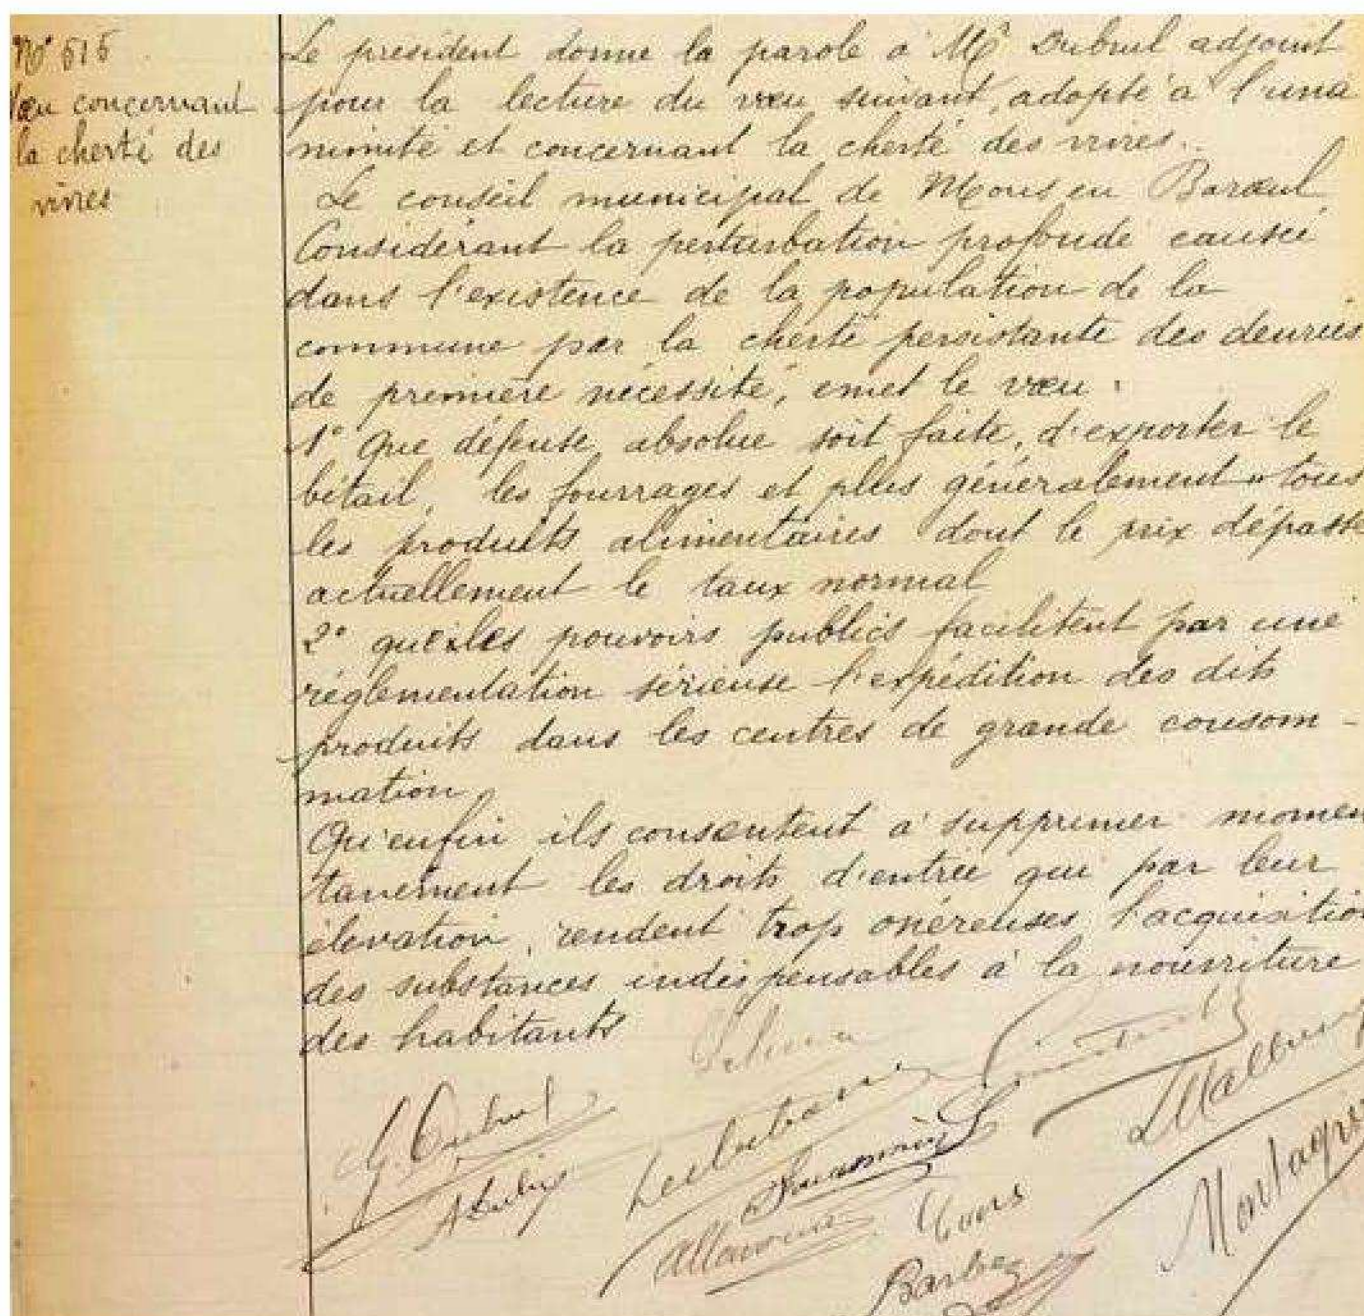 N° 515
Vœu concernant
la cherté des
vivres
Le président donne la parole à Mr Dubrul adjoint
pour la lecture du vœu suivant, adopté à l'una
nimité et concernant la cherté des vivres.
Le conseil municipal de Mons en Barœul
Considérant la perturbation profonde causée
dans l'existence de la population de la
commune par la cherté persistante des denrées
de première nécessité, émet le vœu :
1° Que défense absolue soit faite, d'exporter le
bétail, les fourrages et plus généralement tous
les produits alimentaires dont le prix dépasse
actuellement le taux normal
2° que les pouvoirs publics facilitent par une
réglementation sérieuse l'expédition des dits
produits dans les centres de grande consom-
mation,
Qu'enfin ils consentent à supprimer momen
tanément les droits d'entrée qui par leur
élévation, rendent trop onéreuses l'acquisition
des substances indispensables à la nourriture
des habitants
G. Dubrul
Mons
Barbez
Montagne